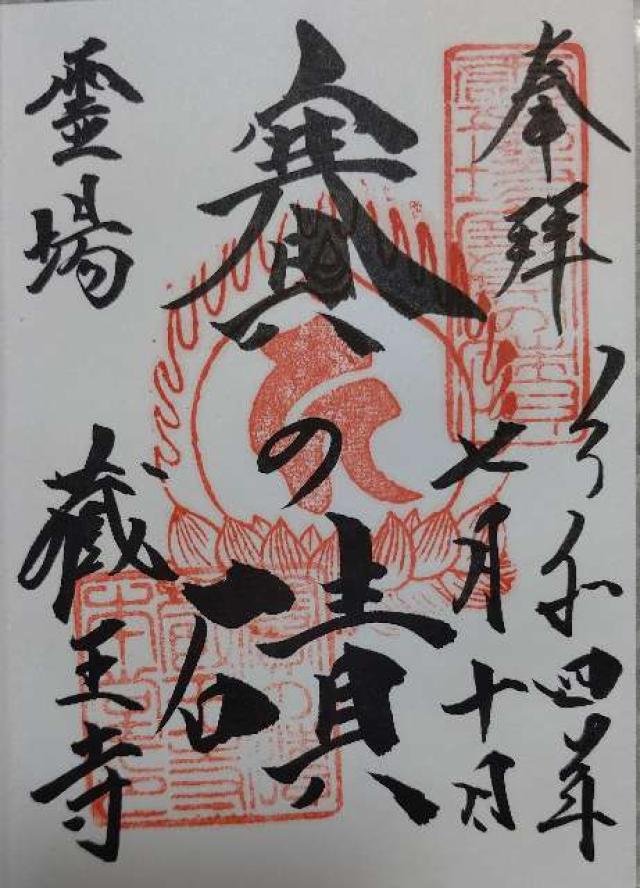 奉拝
令和四年
七月十日
賽の磧
霊場
蔵王寺